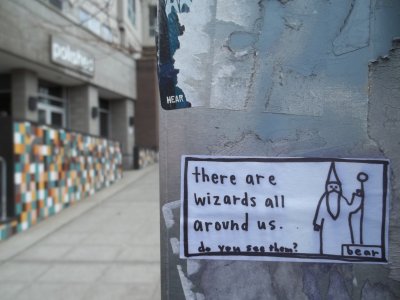 polished
HEAR
there are
wizards all
around us.
do you see them?
bear